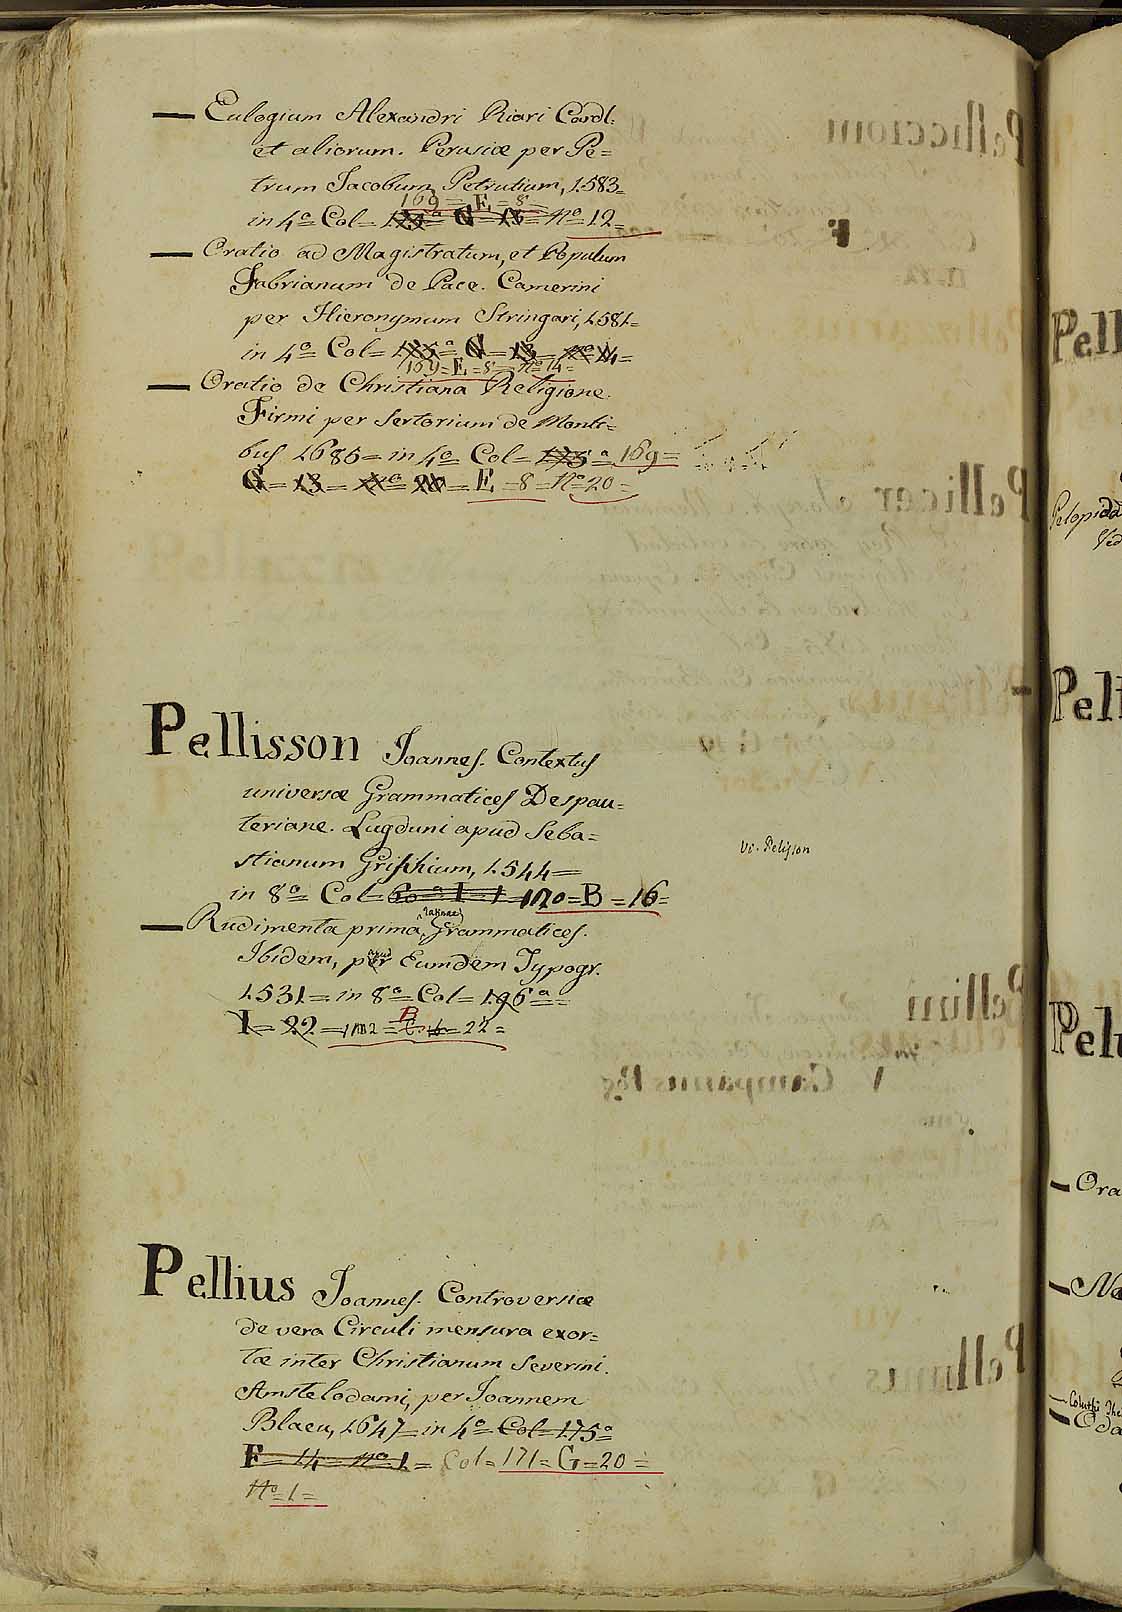 — Eulogium Alexandri Riari Cardl:
et aliorum. Perusiæ per Pe=
trum Jacobum Petrutium, 1583=
169= E = 8=
in 4º= Col= nº= 12=
— Oratio ad Magistratum, et Populum
Fabrianum de Pace. Camerini
per Hieronymum Stringari, 1581=
in 4º= Col= 135ª= G = 13= nº 14=
169= E = 8= nº 14=
— Oratio de Christiana Religione.
Firmi per Sertorium de Monti=
bus 1686= in 4º= Col= 135ª= 169=
G = 13= nº= 20= E = 8= Nº= 20=
Pellisson Joannes. Contextus
universæ Grammatices Despau=
teriane. Lugduni apud Seba=
stianum Griphium, 1544=
in 8º= Col= 60ª= I= 1= 170= B = 16=
vi. Pelisson
latinae
— Rudimenta prima Grammatices.
apud
Ibidem, per Eumdem Typogr.
1531= in 8º= Col= 196ª=
I= 22= 172= B 22=
Pellius Joannes. Controversiæ
de vera Circuli mensura exor=
tæ inter Christianum Severini.
Amstelodami, per Joannem
Blaeu, 1647= in 4º= Col= 175ª
F= 14= nº 1= Col= 171= G= 20=
Nº= 1=
Pell
Pelopida
Ved
Pell
Pelu
— Ora
— Na